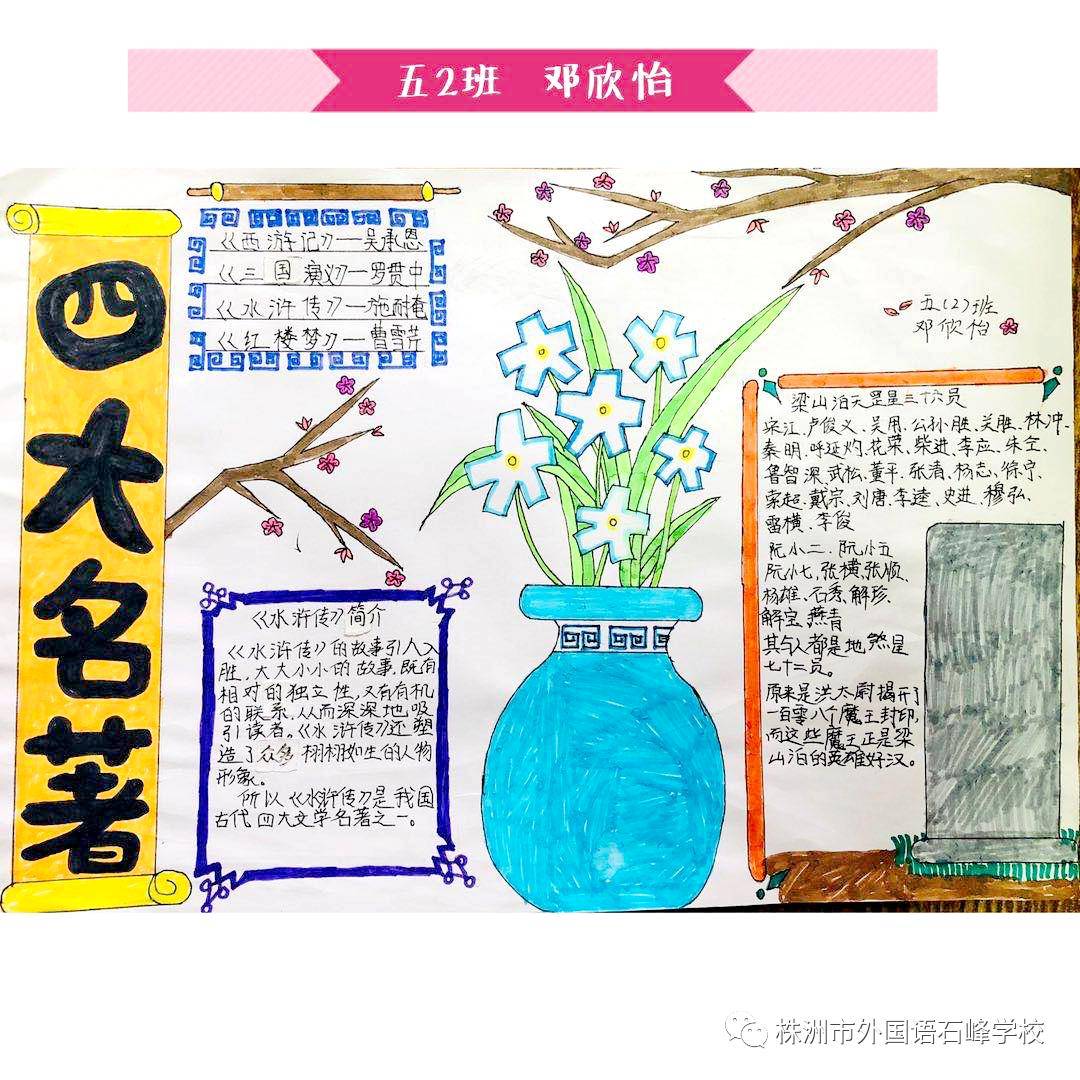 五2班 邓欣怡
四大名著
《西游记》—吴承恩
《三国演义》—罗贯中
《水浒传》—施耐庵
《红楼梦》—曹雪芹
五(2)班
邓欣怡
《水浒传》简介
《水浒传》的故事引人入
胜,大大小小的故事,既有
相对的独立性,又有有机
的联系,从而深深地吸
引读者。《水浒传》还塑
造了众多栩栩如生的人物
形象。
所以《水浒传》是我国
古代四大文学名著之一。
梁山泊天罡星三十六员
宋江、卢俊义、吴用、公孙胜、关胜、林冲、
秦明、呼延灼、花荣、柴进、李应、朱仝、
鲁智深、武松、董平、张清、杨志、徐宁、
索超、戴宗、刘唐、李逵、史进、穆弘、
雷横、李俊
阮小二、阮小五
阮小七、张横、张顺、
杨雄、石秀、解珍、
解宝、燕青
其余人都是地煞星
七十二员。
原来是洪太尉揭开了
一百零八个魔王封印,
而这些魔王正是梁
山泊的英雄好汉。
株洲市外国语石峰学校